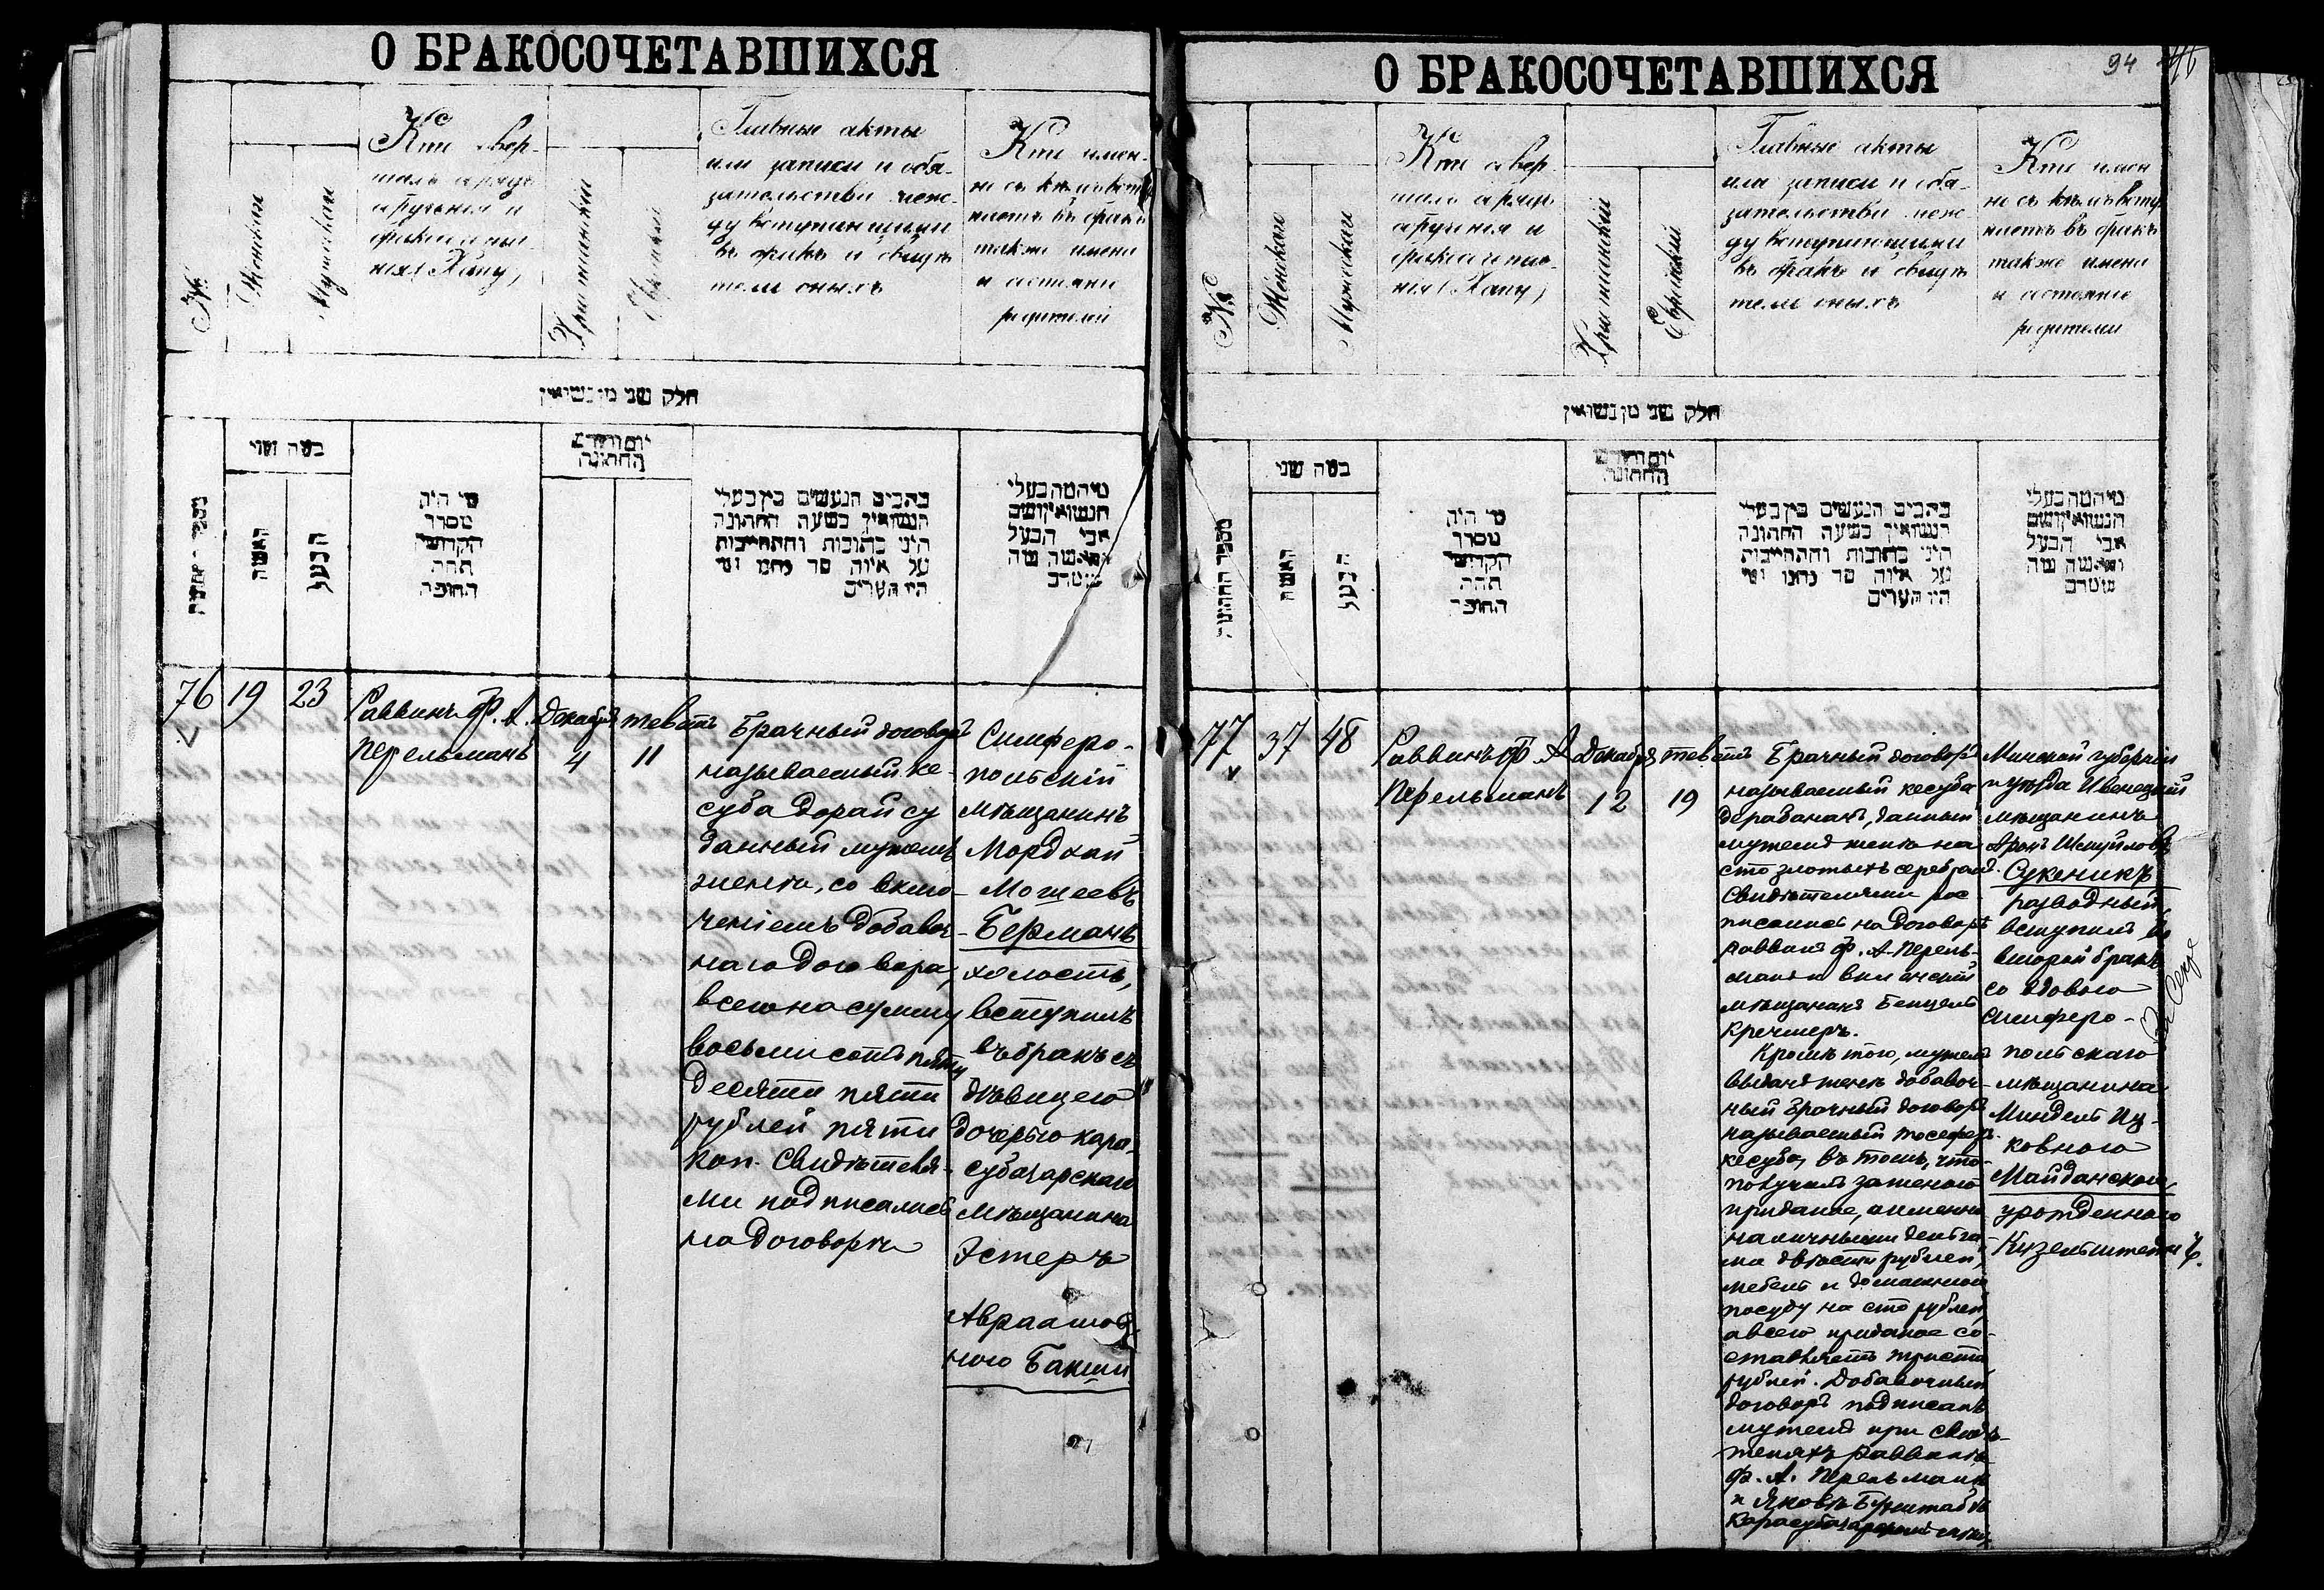 О БРАКОСОЧЕТАВШИХСЯ
№
Женскаго
Мужескаго
Кто совер-
шалъ обрядъ
обрученія и
бракосочета-
нія (Хупу)
Христіанскій
Еврейскій
Главные акты
или записи и обя-
зательства меж-
ду вступающими
въ бракъ и свидѣ-
тели оныхъ
Кто имен-
но съ кѣмъ всту-
паетъ въ бракъ
также имена
и состояніе
родителей
חלק שני מן נשואין
במה שני
האשה
הבעל
מי היה
מסדר
הקדושין
תחת
החופה
יום וחודש
החתונה
76
19
23
Раввинъ Ф. А.
Перельманъ
Декабря
4
теветъ
11
Брачный договоръ
называемый ке-
суба дорайсу
данный мужемъ
женѣ, со вклю-
ченіемъ добавоч-
наго договора,
всего на сумму
восьмисотъ пяти
десяти пяти
рублей пяти
коп. Свидѣтеля-
ми подписались
на договорѣ
Симферо-
польскій
мѣщанинъ
Мордхай
Мошеевъ
Берманъ
холостъ,
вступилъ
въ бракъ съ
дѣвицею
дочерью кара-
субазарскаго
мѣщанина
Эстеръ
Авраамов-
ною Бакши
О БРАКОСОЧЕТАВШИХСЯ
94
№
Женскаго
Мужескаго
Кто совер-
шалъ обрядъ
обрученія и
бракосочета-
нія (Хупу)
Христіанскій
Еврейскій
Главные акты
или записи и обя-
зательства меж-
ду вступающими
въ бракъ и свидѣ-
тели оныхъ
Кто имен-
но съ кѣмъ всту-
паетъ въ бракъ
также имена
и состояніе
родителей
חלק שני מן נשואין
במה שני
מספר החתונה
האשה
הבעל
מי היה
מסדר
הקדושין
תחת
החופה
יום וחודש
החתונה
77
37
48
Раввинъ Ф. А
Перельманъ
Декабря
12
теветъ
19
Брачный договоръ
называемый кесуба
дерабананъ, данный
мужемъ женѣ на
сто злотыхъ серебромъ.
Свидѣтелями рос-
писались на договорѣ
раввинъ Ф. А. Перель-
манъ и виленскій
мѣщанинъ Бенцель
Кречмеръ.
Кромѣ того, мужемъ
выданъ женѣ добавоч-
ный брачный договоръ
называемый тосефесъ
кесуба, въ томъ, что
получилъ за женою
приданое, а именно
наличными деньга-
ми двѣсти рублей,
мебель и домашнюю
посуду на сто рублей,
а всего приданое со-
ставляетъ триста
рублей. Добавочный
договоръ подписанъ
мужемъ при свидѣ-
теляхъ раввинѣ
Ф. А. Перельманъ
и Яковъ Бронштабъ
Карасубазарскій
Минской губерніи
и уѣзда Ивенецкій
мѣщанинъ
Аронъ Шмуйловъ
Сукеникъ
разводный,
вступилъ во
второй бракъ
со вдовою
симферо-
польскаго
мѣщанина
Миндель Иц-
ковною
Майданскою,
урожденною
Кизельштейнъ